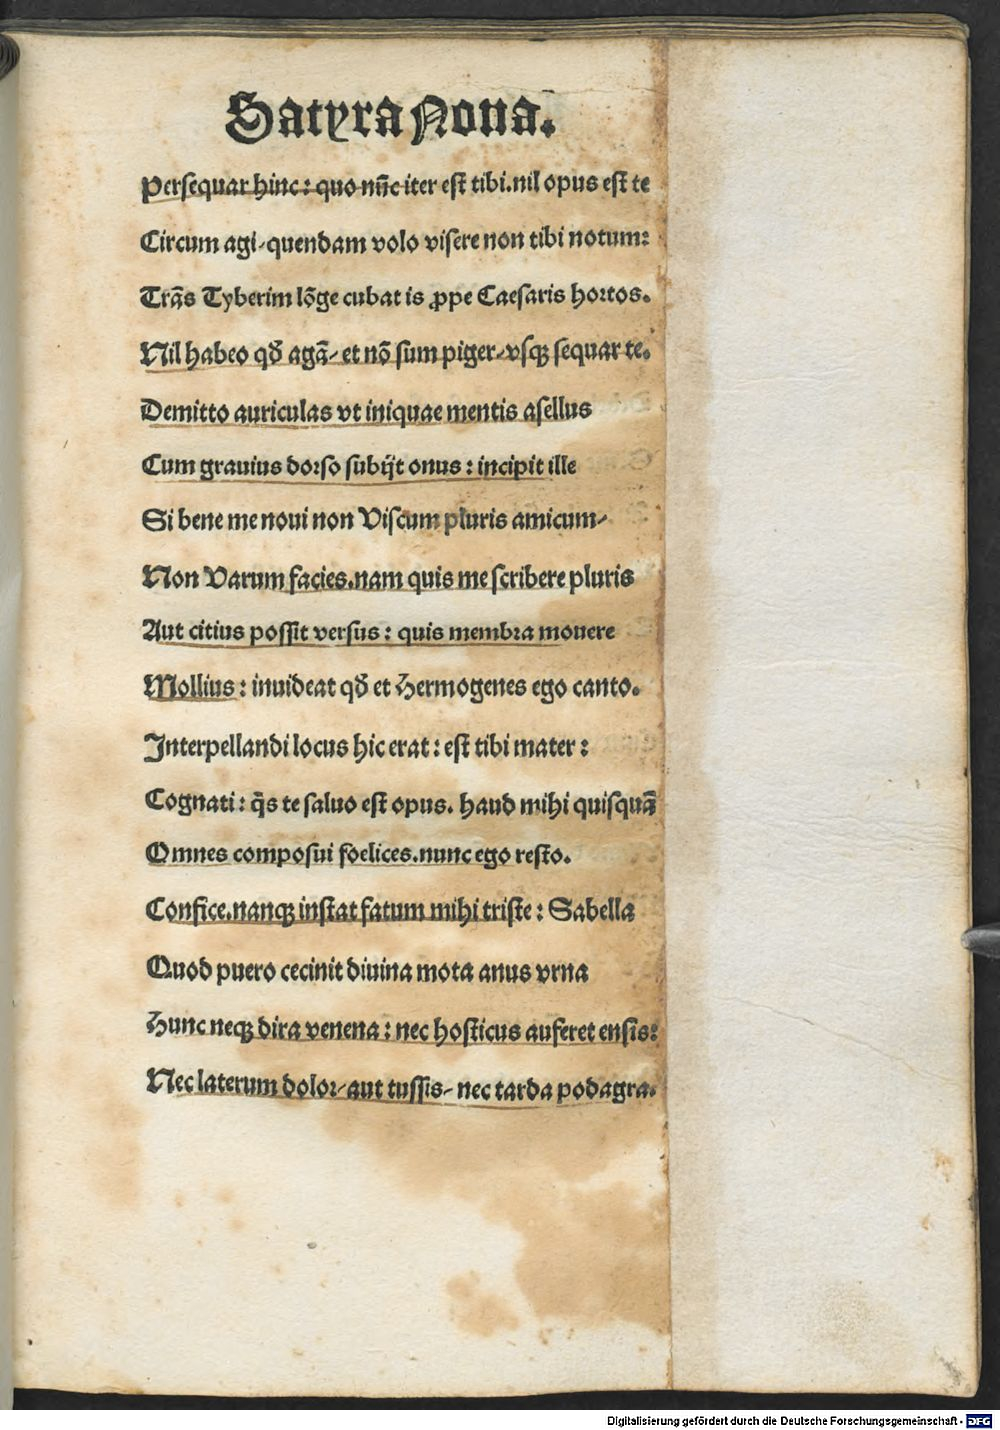 Satyra Nona.
Persequar hinc: quo nūc iter est tibi. nil opus est te
Circum agi/ quendam volo visere non tibi notum:
Trās Tyberim lōge cubat is ꝓpe Caesaris hortos.
Nil habeo qđ agā/ et nō sum piger/ vsqꝫ sequar te.
Demitto auriculas vt iniquae mentis asellus
Cum grauius dorso subijt onus: incipit ille
Si bene me noui non Viscum pluris amicum/
Non Varum facies. nam quis me scribere pluris
Aut citius possit versus: quis membra mouere
Mollius: inuideat qđ et Hermogenes ego canto.
Interpellandi locus hic erat: est tibi mater:
Cognati: q̄s te saluo est opus. haud mihi quisquā
Omnes composui foelices. nunc ego resto.
Confice. nanqꝫ instat fatum mihi triste: Sabella
Quod puero cecinit diuina mota anus vrna
Hunc neqꝫ dira venena: nec hosticus auferet ensis:
Nec laterum dolor/ aut tussis/ nec tarda podagra.
Digitalisierung gefördert durch die Deutsche Forschungsgemeinschaft - DFG